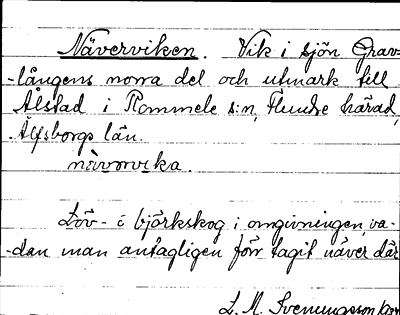 Näverviken. Vik i sjön Grav-
-långens norra del och utmark till
Ålstad i Rommele s:n, Flundre härad,
Älfsborgs län.
nävərvika.
Löv- o björkskog i omgivningen, va-
-dan man antagligen förr tagit näver där
L. M. Svenningsson